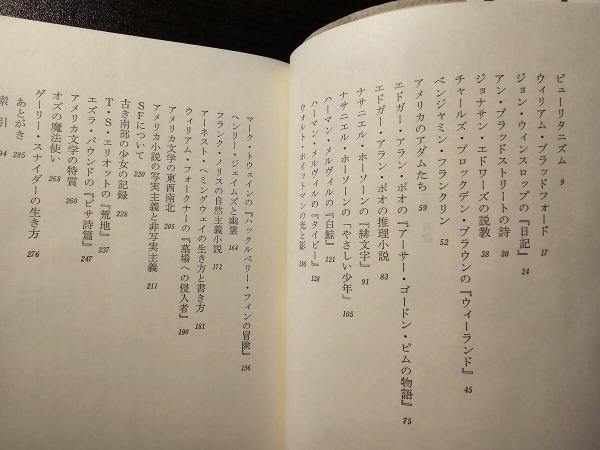 ピューリタニズム 9
ウィリアム・ブラッドフォード 17
ジョン・ウィンスロップの『日記』 24
アン・ブラッドストリートの詩 30
ジョナサン・エドワーズの説教 38
チャールズ・ブロックデン・ブラウンの『ウィーランド』 45
ベンジャミン・フランクリン 52
アメリカのアダムたち 59
エドガー・アラン・ポオの『アーサー・ゴードン・ピムの物語』 75
エドガー・アラン・ポオの推理小説 83
ナサニエル・ホーソーンの『緋文字』 91
ナサニエル・ホーソーンの「やさしい少年」 105
ハーマン・メルヴィルの『白鯨』 121
ハーマン・メルヴィルの『タイピー』 128
ウォルト・ホイットマンの光と影 136
マーク・トウェインの『ハックルベリー・フィンの冒険』 156
ヘンリー・ジェイムズと幽霊 164
フランク・ノリスの自然主義小説 172
アーネスト・ヘミングウェイの生き方と書き方 181
ウィリアム・フォークナーの『墓場への侵入者』 190
アメリカ文学の東西南北 205
アメリカ小説の写実主義と非写実主義 211
SFについて 220
古き南部の少女の記録 228
T・S・エリオットの『荒地』 237
エズラ・パウンドの『ピサ詩篇』 247
アメリカ文学の特質 260
オズの魔法使い 268
ゲーリー・スナイダーの生き方 276
あとがき 285
索引 94